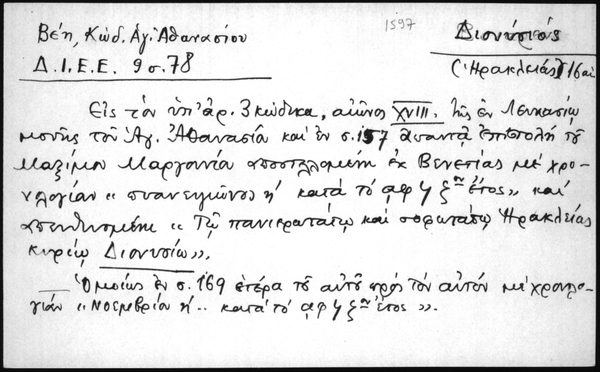 1597
Βέη, Κώδ. Ἁγ. Ἀθανασίου
Διονύσιος
Δ.Ι.Ε.Ε. 9 σ. 78
(Ἡρακλείας) 16 αἰ
Εἰς τὸν ὑπ' ἀρ. 3 κώδικα, αἰῶνος XVIII. τῆς ἐν Λευκασίῳ
μονῆς τοῦ Ἁγ. Ἀθανασίου καὶ ἐν σ. 157 ἀπαντᾷ ἐπιστολὴ τοῦ
Μαξίμου Μαργουνίου ἀποστελλομένη ἐκ Βενετίας μὲ χρο-
νολογίαν « πυανεψιῶνος η' κατὰ τὸ αφϟζον ἔτος » καὶ
ἀπευθυνομένη « Τῷ πανιερωτάτῳ καὶ σοφωτάτῳ Ἡρακλείας
κυρίῳ Διονυσίῳ ».
Ὁμοίως ἐν σ. 169 ἑτέρα τοῦ αὐτοῦ πρὸς τὸν αὐτόν μὲ χρονολο-
γίαν « Νοεμβρίου η' .. κατὰ τὸ αφϟζον ἔτος ».